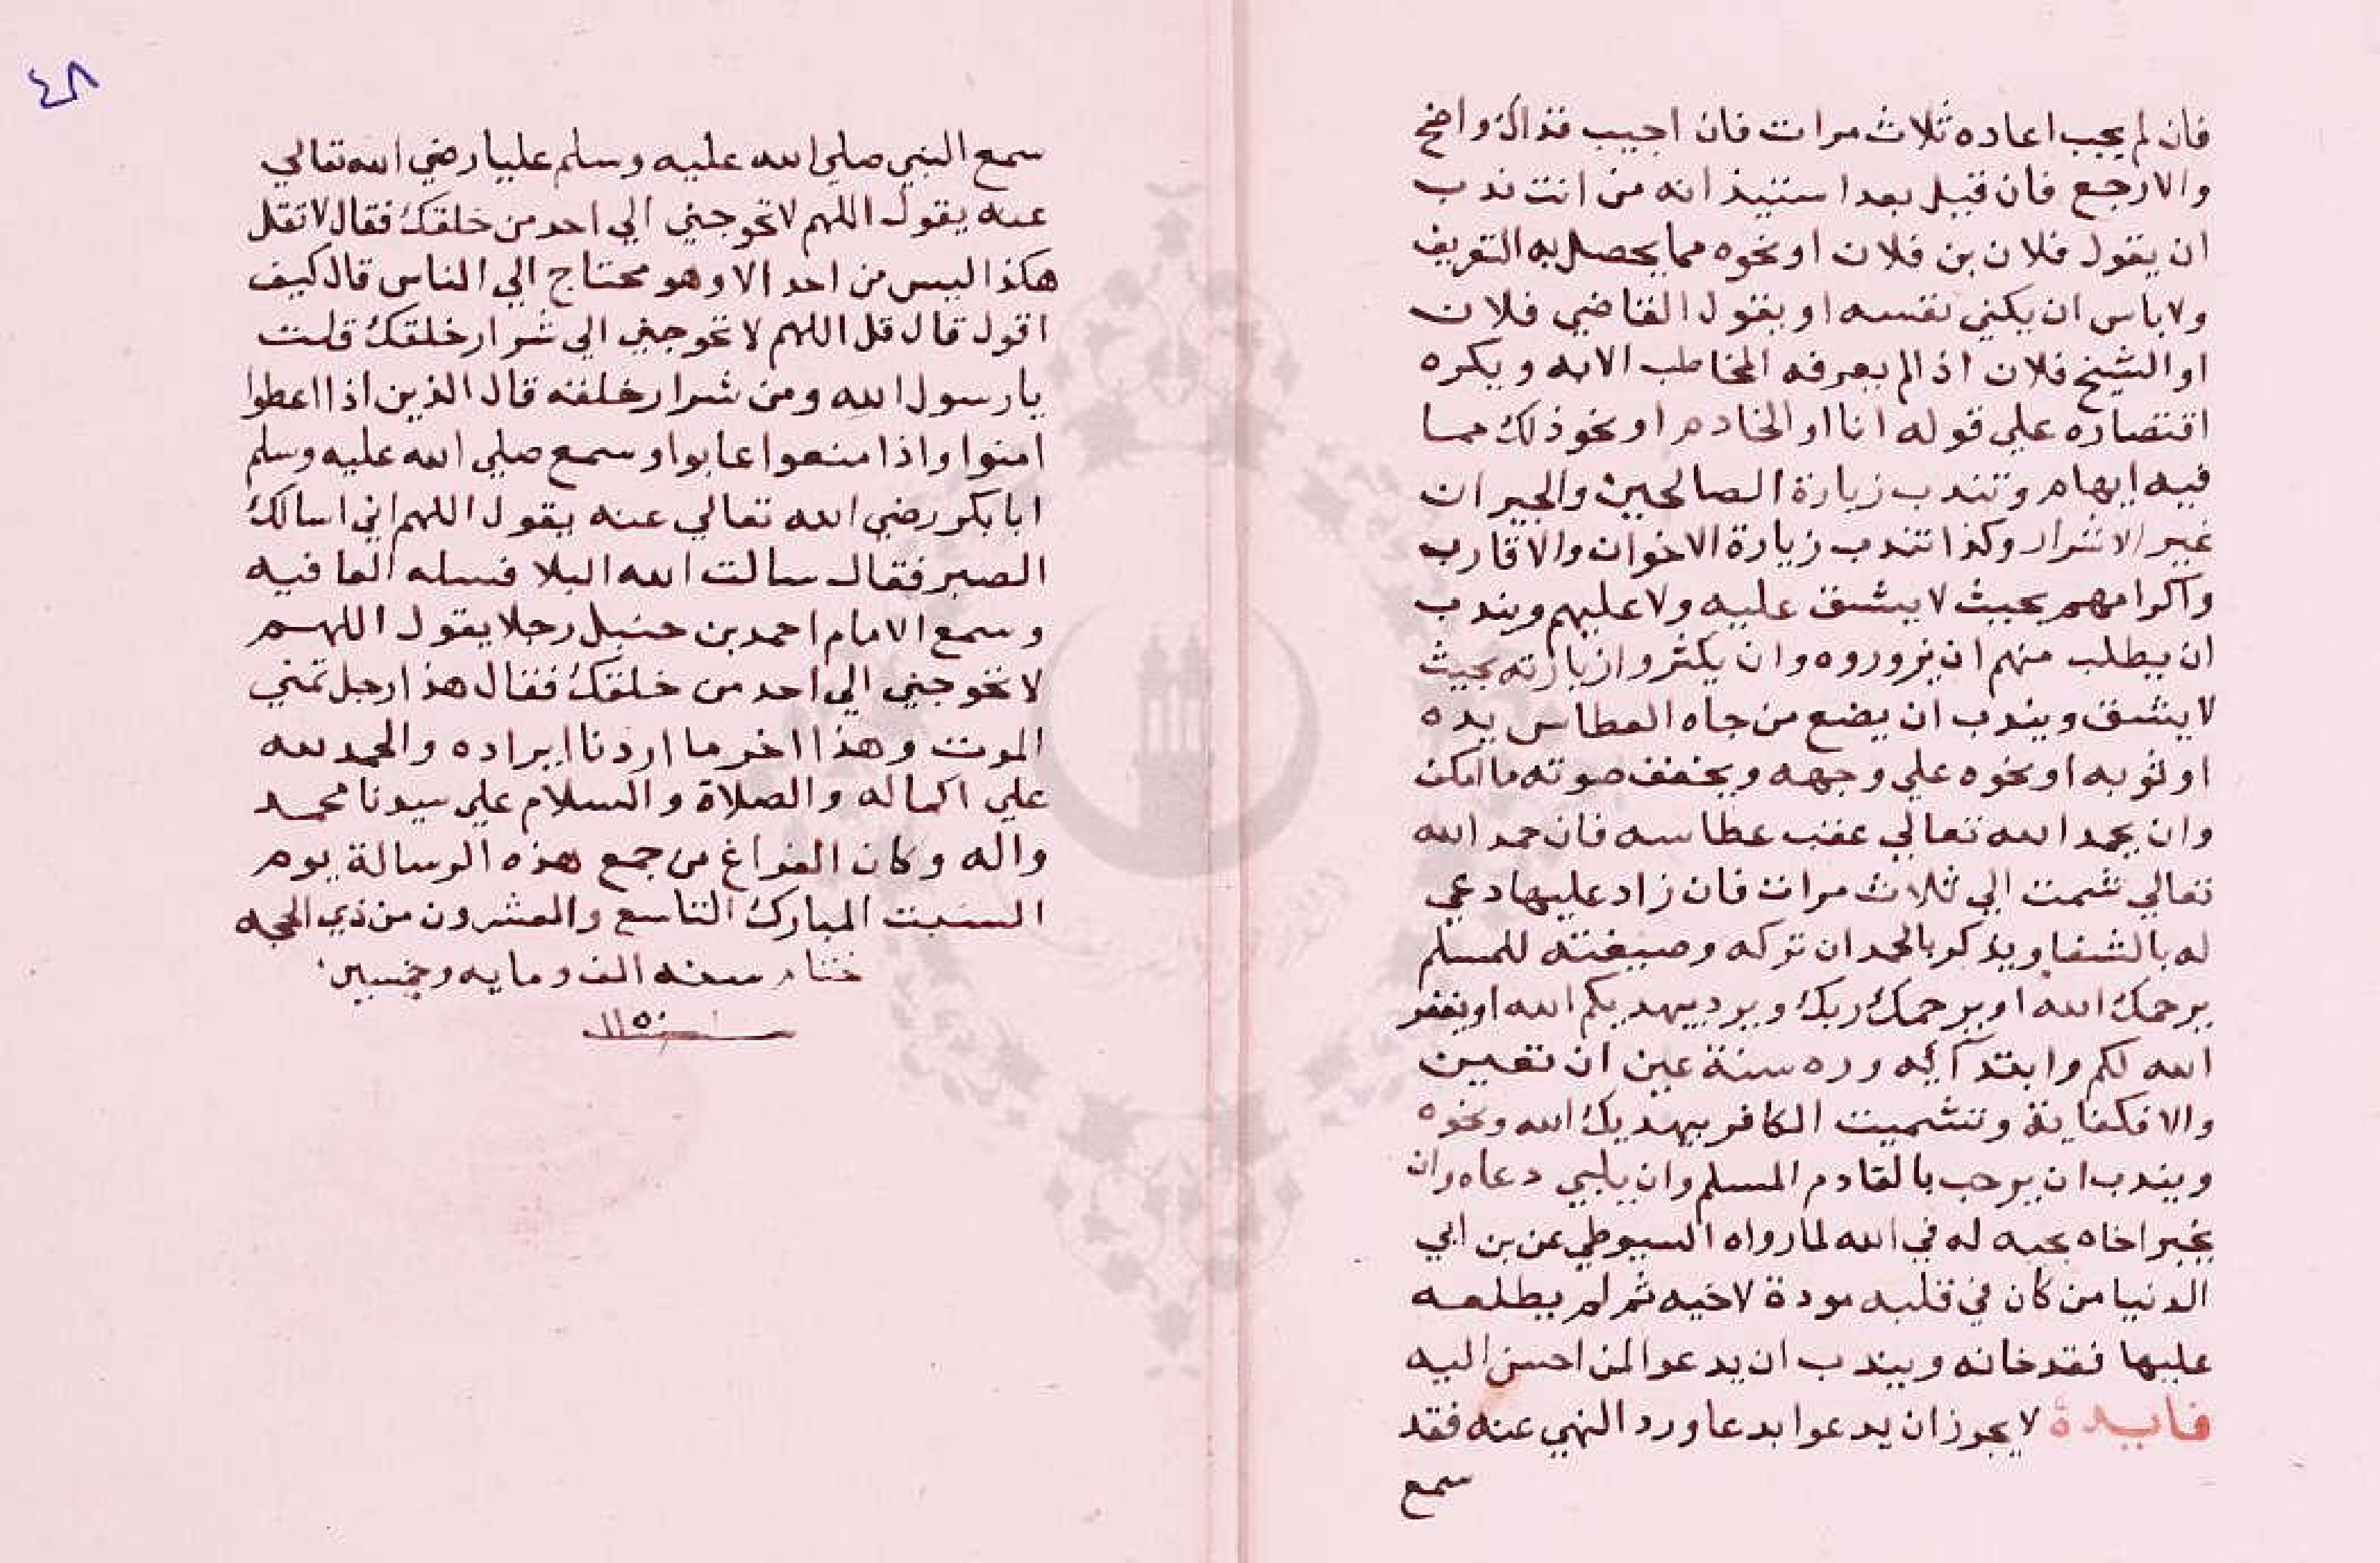 فان لم يجب اعاده ثلاث مرات فان اجيب فذاك واضح
والا رجع فان قيل بعد استيذانه من انت ندب
ان يقول فلان بن فلان او نحوه مما يحصل به التعريف
ولا باس ان يكني نفسه او يقول القاضي فلان
او الشيخ فلان اذا لم يعرفه المخاطب الا به ويكره
اقتصاره علي قوله انا او الخادم او نحو ذلك مما
فيه ايهام وتندب زيارة الصالحين والجيران
غير الاشرار وكذا تندب زيارة الاخوان والاقارب
واكرامهم بحيث لا يشق عليه ولا عليهم ويندب
ان يطلب منهم ان يزوروه وان يكثروا زيارته بحيث
لا يشق ويندب ان يضع من جاه العطاس يده
او ثوبه او نحوه علي وجهه ويخفف صوته ما امكن
وان يحمد الله تعالي عقب عطاسه فان حمد الله
تعالي شمت الي ثلاث مرات فان زاد عليها دعي
له بالشفا ويذكر بالحمد ان تركه وصيغته للمسلم
يرحمك الله او يرحمك ربك ويرد بيهديكم الله او يغفر
الله لكم وابتدآئه ورده سنة عين ان تعين
والا فكفاية وتشميت الكافر بيهديك الله ونحوه
ويندب ان يرحب بالقادم المسلم وان يلبي دعاه وان
يخبر اخاه بحبه له في الله لما رواه السيوطي عن بن ابي
الدنيا من كان في قلبه مودة لاخيه ثم لم يطلعه
عليها فقد خانه ويندب ان يدعوا لمن احسن اليه
فايدة لا يجوز ان يدعوا بدعا ورد النهي عنه فقد
سمع
٤٨
سمع النبي صلي الله عليه وسلم عليا رضي الله تعالي
عنه يقول اللهم لا تحوجني الي احد من خلقك فقال لا تقل
هكذا ليس من احد الا وهو محتاج الي الناس قال كيف
اقول قال قل اللهم لا تحوجني الي شرار خلقك قلت
يا رسول الله ومن شرار خلقه قال الذين اذا اعطوا
امنوا واذا منعوا عابوا وسمع صلي الله عليه وسلم
ابا بكر رضي الله تعالي عنه يقول اللهم اني اسالك
الصبر فقال سالت الله البلا فسله العافيه
وسمع الامام احمد بن حنبل رجلا يقول اللهم
لا تحوجني الي احد من خلقك فقال هذا رجل تمني
الموت وهذا اخر ما اردنا ايراده والحمد لله
علي اكماله والصلاة والسلام علي سيدنا محمد
واله وكان الفراغ من جمع هذه الرسالة يوم
السبت المبارك التاسع والعشرون من ذي الحجه
ختام سنه الف ومايه وخمسين
سنة ١١٥٠